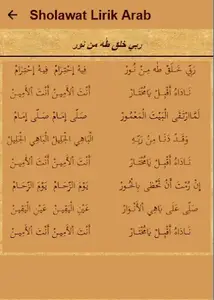 Sholawat Lirik Arab
ربي خلق طه من نور
رَبِّي خَلَقْ طٰهَ مِنْ نُورْ فِيهْ إِحْتِرَامْ فِيهْ إِحْتِرَامْ
نَادَاهُ أَقْبِلْ يَامُخْتَارْ أَنْتَ الْأَمِينْ أَنْتَ الْأَمِينْ
لَمَّارْتَقَى الْبَيْتَ الْمَعْمُورْ صَلَّى إِمَامْ صَلَّى إِمَامْ
وَقَدْ دَنَا مِنْ رَبِّهْ الْبَاهِي الْجَلِيلْ الْبَاهِي الْجَلِيلْ
نَادَاهُ أَقْبِلْ يَامُخْتَارْ أَنْتَ الْأَمِينْ أَنْتَ الْأَمِينْ
إِنْ رُمْتَ أَنْ تَحْظَى بِالْحُورْ يَوْمَ الزِّحَامْ يَوْمَ الزِّحَامْ
صَلِّي عَلَى بَاهِي الْأَنْوَارْ عَيْنِ الْيَقِينْ عَيْنِ الْيَقِينْ
نَادَاهُ أَقْبِلْ يَامُخْتَارْ أَنْتَ الْأَمِينْ أَنْتَ الْأَمِينْ